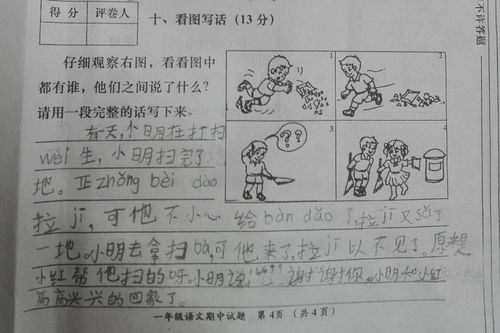 得分 评卷人
十、看图写话（13分）
仔细观察右图，看看图中
都有谁，他们之间说了什么？
请用一段完整的话写下来。
1
2
3
4
? ? ?
有天，小明在打扫
wèi生，小明扫完了
地。正zhǎng bèi dào
拉jī，可他不小心给bàn dǎo了，拉jī又sǎ了
一地。小明去拿扫bǎ，可他来了，拉jī以不见了。原
小红帮他扫的呀。小明说：“谢谢你。小明和小红
高高兴兴的回家了。
一年级语文期中试题 第4页（共4页）
不许答题